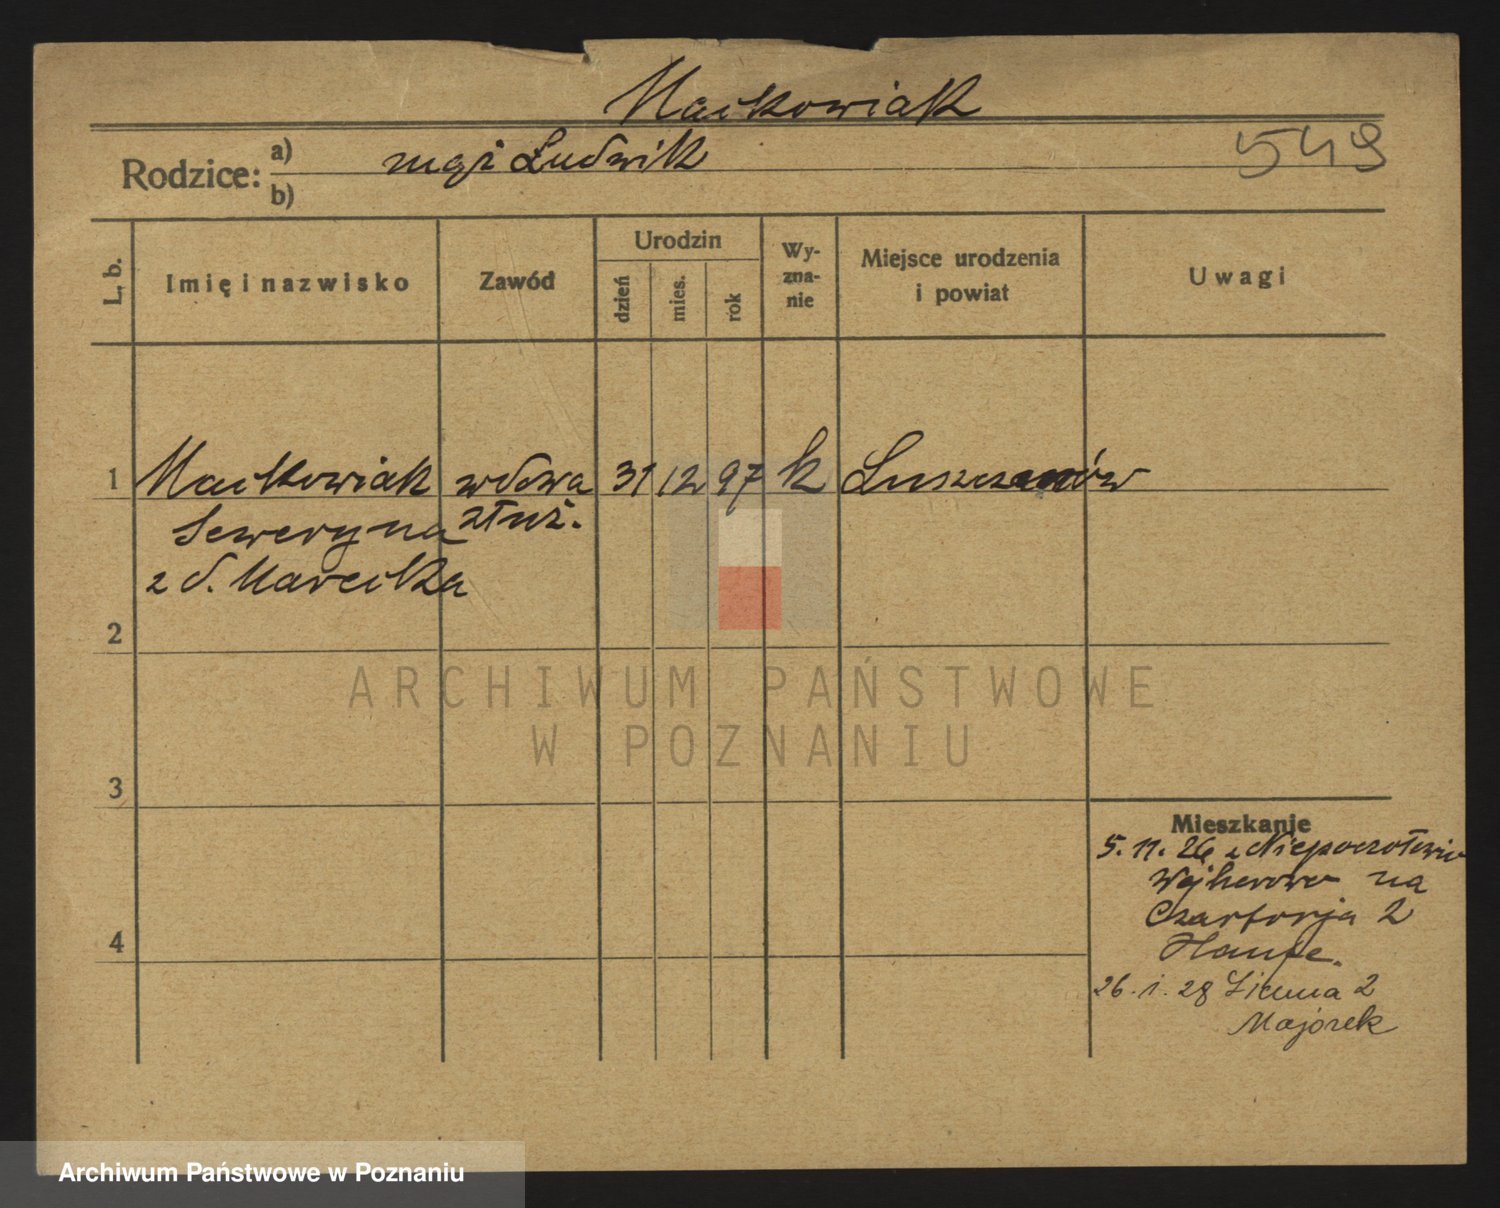 Maćkowiak
Rodzice: a) mąż Ludwik
b)
549
L. b. Imię i nazwisko Zawód Urodzin dzień mies. rok Wyznanie Miejsce urodzenia i powiat Uwagi
1 Maćkowiak wdowa 31 12 97 k Luszczanów
Seweryna służ.
z d. Marcika
2
3
4
Mieszkanie
5. 11. 26 z
Wejherowo na
Czartorja 2
Haupe.
26. 1. 28 Zimna 2
Majorek
ARCHIWUM PAŃSTWOWE
W POZNANIU
Archiwum Państwowe w Poznaniu